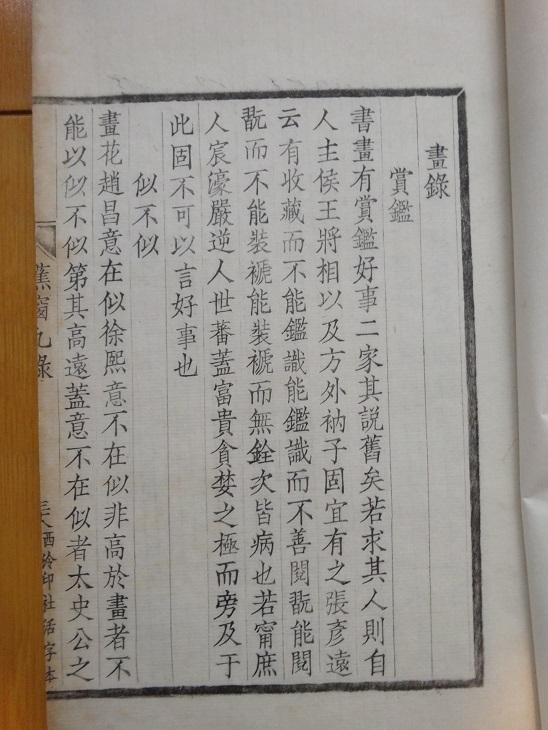 畫錄
賞鑑
書畫有賞鑑好事二家其説舊矣若求其人則自
人主侯王將相以及方外衲子固宜有之張彥遠
云有收藏而不能鑑識能鑑識而不善閱翫能閱
翫而不能裝褫能裝褫而無銓次皆病也若甯庶
人宸濠嚴逆人世蕃蓋富貴貪婪之極而旁及于
此固不可以言好事也
似不似
畫花趙昌意在似徐熙意不在似非高於畫者不
能以似不似第其高遠蓋意不在似者太史公之
蕉窗九錄
西泠印社活字本